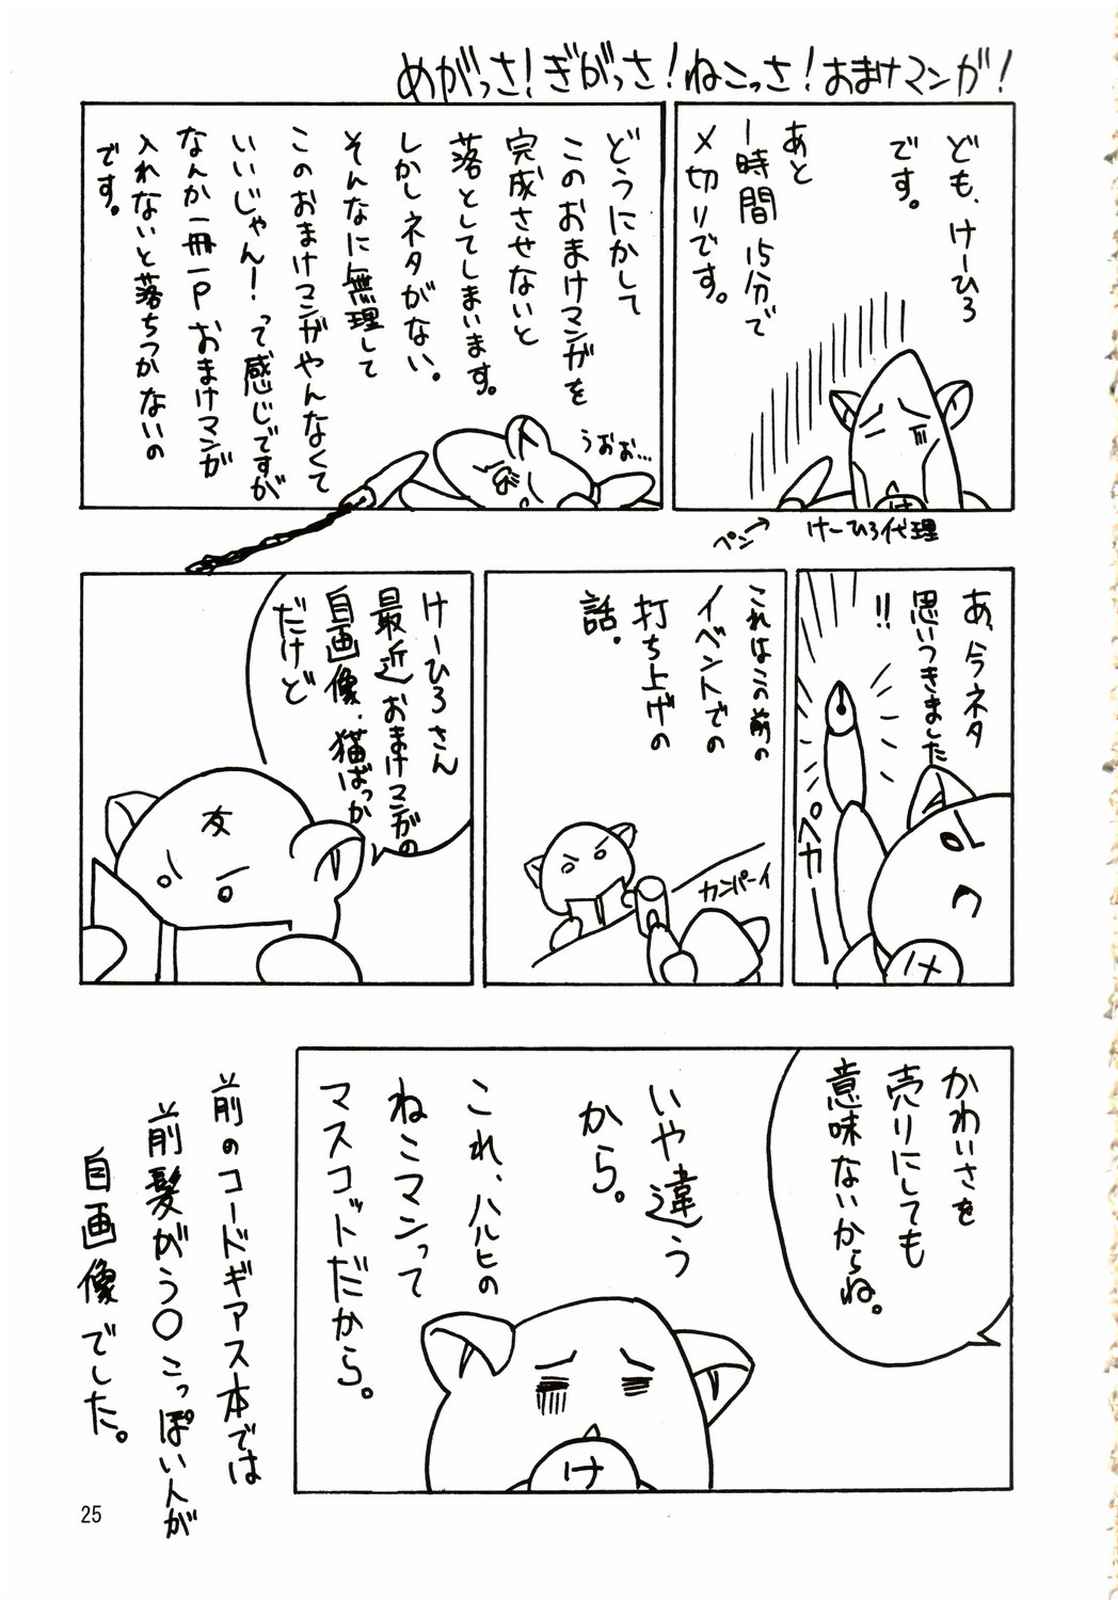 めがっさ！ぎがっさ！ねこっさ！おまけマンガ！
ども、けーひろ
です。
あと
一時間15分で
〆切りです。
け
ペン→
けーひろ代理
どうにかして
このおまけマンガを
完成させないと
落としてしまいます。
しかしネタがない。
そんなに無理して
このおまけマンガやんなくて
いいじゃん！って感じですが
なんか一冊一Pおまけマンガ
入れないと落ちつかないの
です。
うおぉ…
あ、今ネタ
思いつきました
!!
ペカー
け
これはこの前の
イベントでの
打ち上げの
話。
カンパーイ
けーひろさん
最近おまけマンガの
自画像、猫ばっか
だけど
友
かわいさを
売りにしても
意味ないからね。
いや違う
から。
これ、ハルヒの
ねこマンって
マスコットだから。
け
前のコードギアス本では
前髪がう〇こっぽい人が
自画像でした。
25